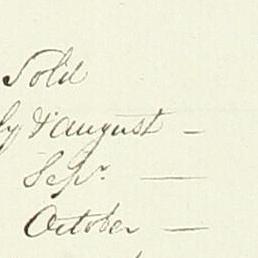 Sold
ly & August –
Sepr. —
October —